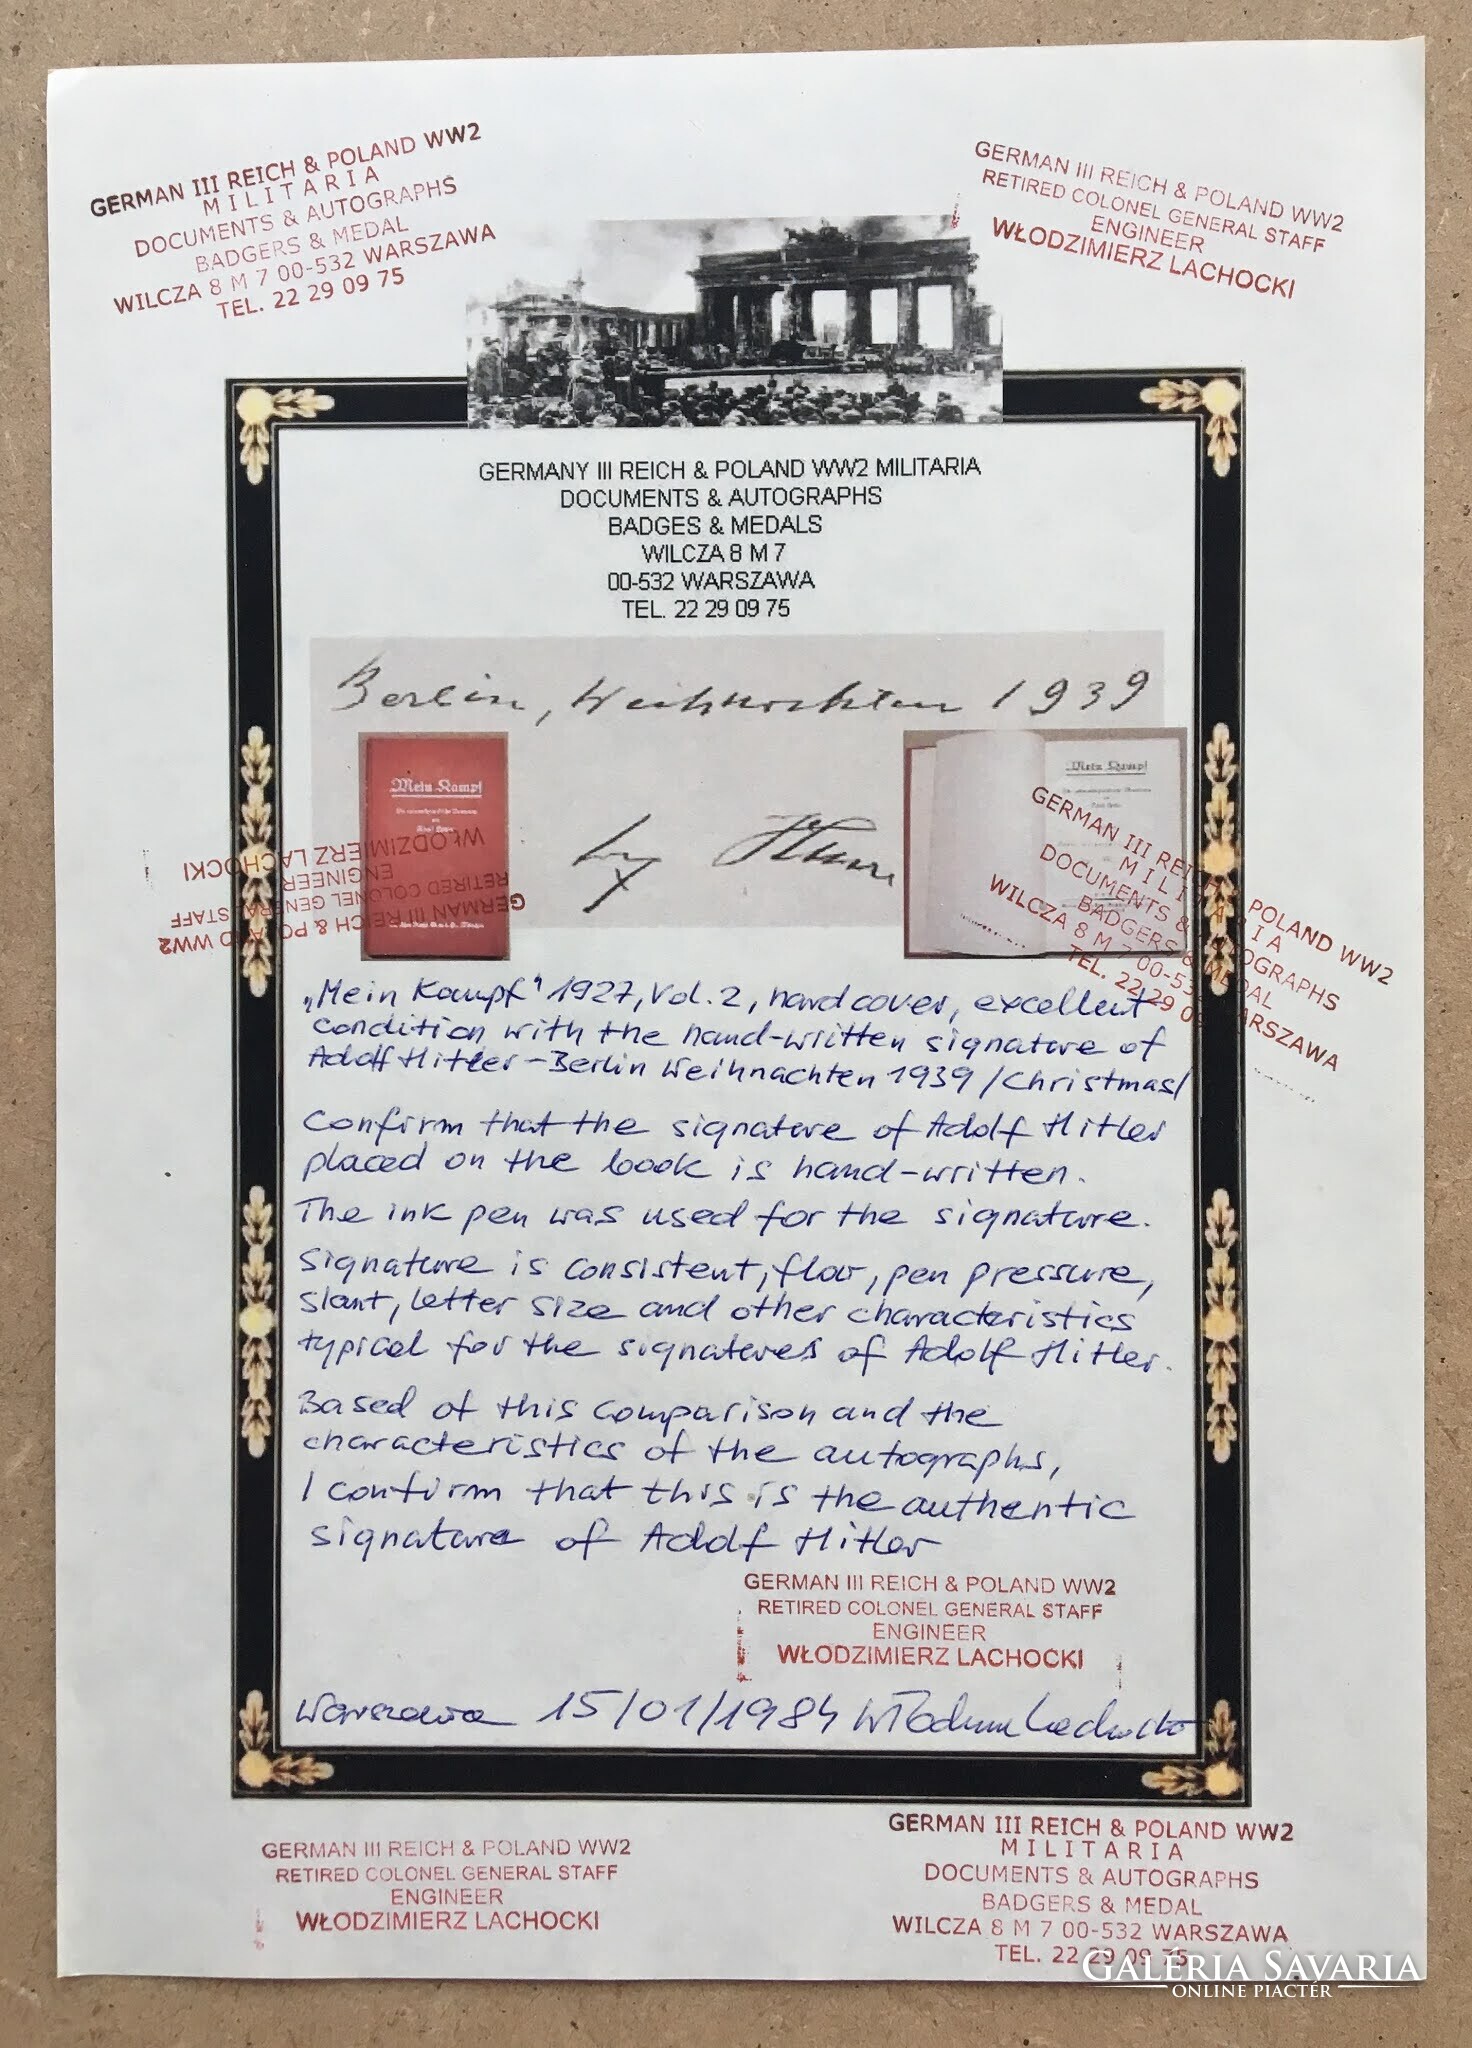 GERMAN III REICH & POLAND WW2
MILITARIA
DOCUMENTS & AUTOGRAPHS
BADGERS & MEDAL
WILCZA 8 M 7 00-532 WARSZAWA
TEL. 22 29 09 75
GERMAN III REICH & POLAND WW2
RETIRED COLONEL GENERAL STAFF
ENGINEER
WŁODZIMIERZ LACHOCKI
GERMANY III REICH & POLAND WW2 MILITARIA
DOCUMENTS & AUTOGRAPHS
BADGES & MEDALS
WILCZA 8 M 7
00-532 WARSZAWA
TEL. 22 29 09 75
Berlin, Weihnachten 1939
Mein Kampf
Mein Kampf
WŁODZIMIERZ LACHOCKI
ENGINEER
RETIRED COLONEL GENERAL STAFF
GERMAN III REICH & POLAND WW2
GERMAN III REICH & POLAND WW2
MILITARIA
DOCUMENTS & AUTOGRAPHS
BADGERS & MEDAL
WILCZA 8 M 7 00-532 WARSZAWA
TEL. 22 29 0
„Mein Kampf" 1927, Vol. 2, hard cover, excellent
condition with the hand-written signature of
Adolf Hitler - Berlin Weihnachten 1939 /Christmas/
Confirm that the signature of Adolf Hitler
placed on the book is hand-written.
The ink pen was used for the signature.
Signature is consistent, flow, pen pressure,
slant, letter size and other characteristics
typical for the signatures of Adolf Hitler.
Based of this comparison and the
characteristics of the autographs,
I confirm that this is the authentic
signature of Adolf Hitler
GERMAN III REICH & POLAND WW2
RETIRED COLONEL GENERAL STAFF
ENGINEER
WŁODZIMIERZ LACHOCKI
Warszawa 15/01/1984 Włodzim Lachocki
GERMAN III REICH & POLAND WW2
RETIRED COLONEL GENERAL STAFF
ENGINEER
WŁODZIMIERZ LACHOCKI
GERMAN III REICH & POLAND WW2
MILITARIA
DOCUMENTS & AUTOGRAPHS
BADGERS & MEDAL
WILCZA 8 M 7 00-532 WARSZAWA
TEL. 22 29 09 75
GALÉRIA SAVARIA
ONLINE PIACTÉR